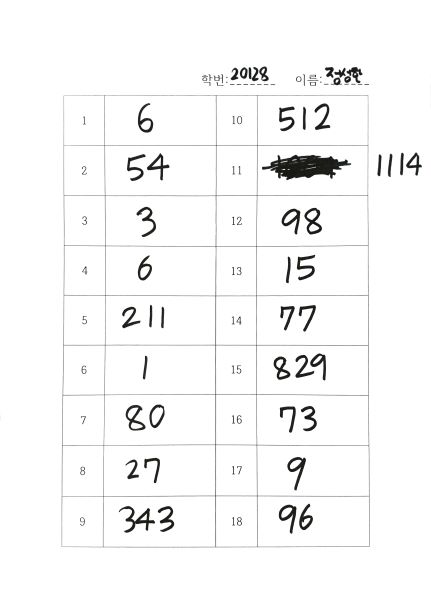 학번: 20128 이름: 정성환
1 6 10 512
2 54 11 1114
3 3 12 98
4 6 13 15
5 211 14 77
6 1 15 829
7 80 16 73
8 27 17 9
9 343 18 96